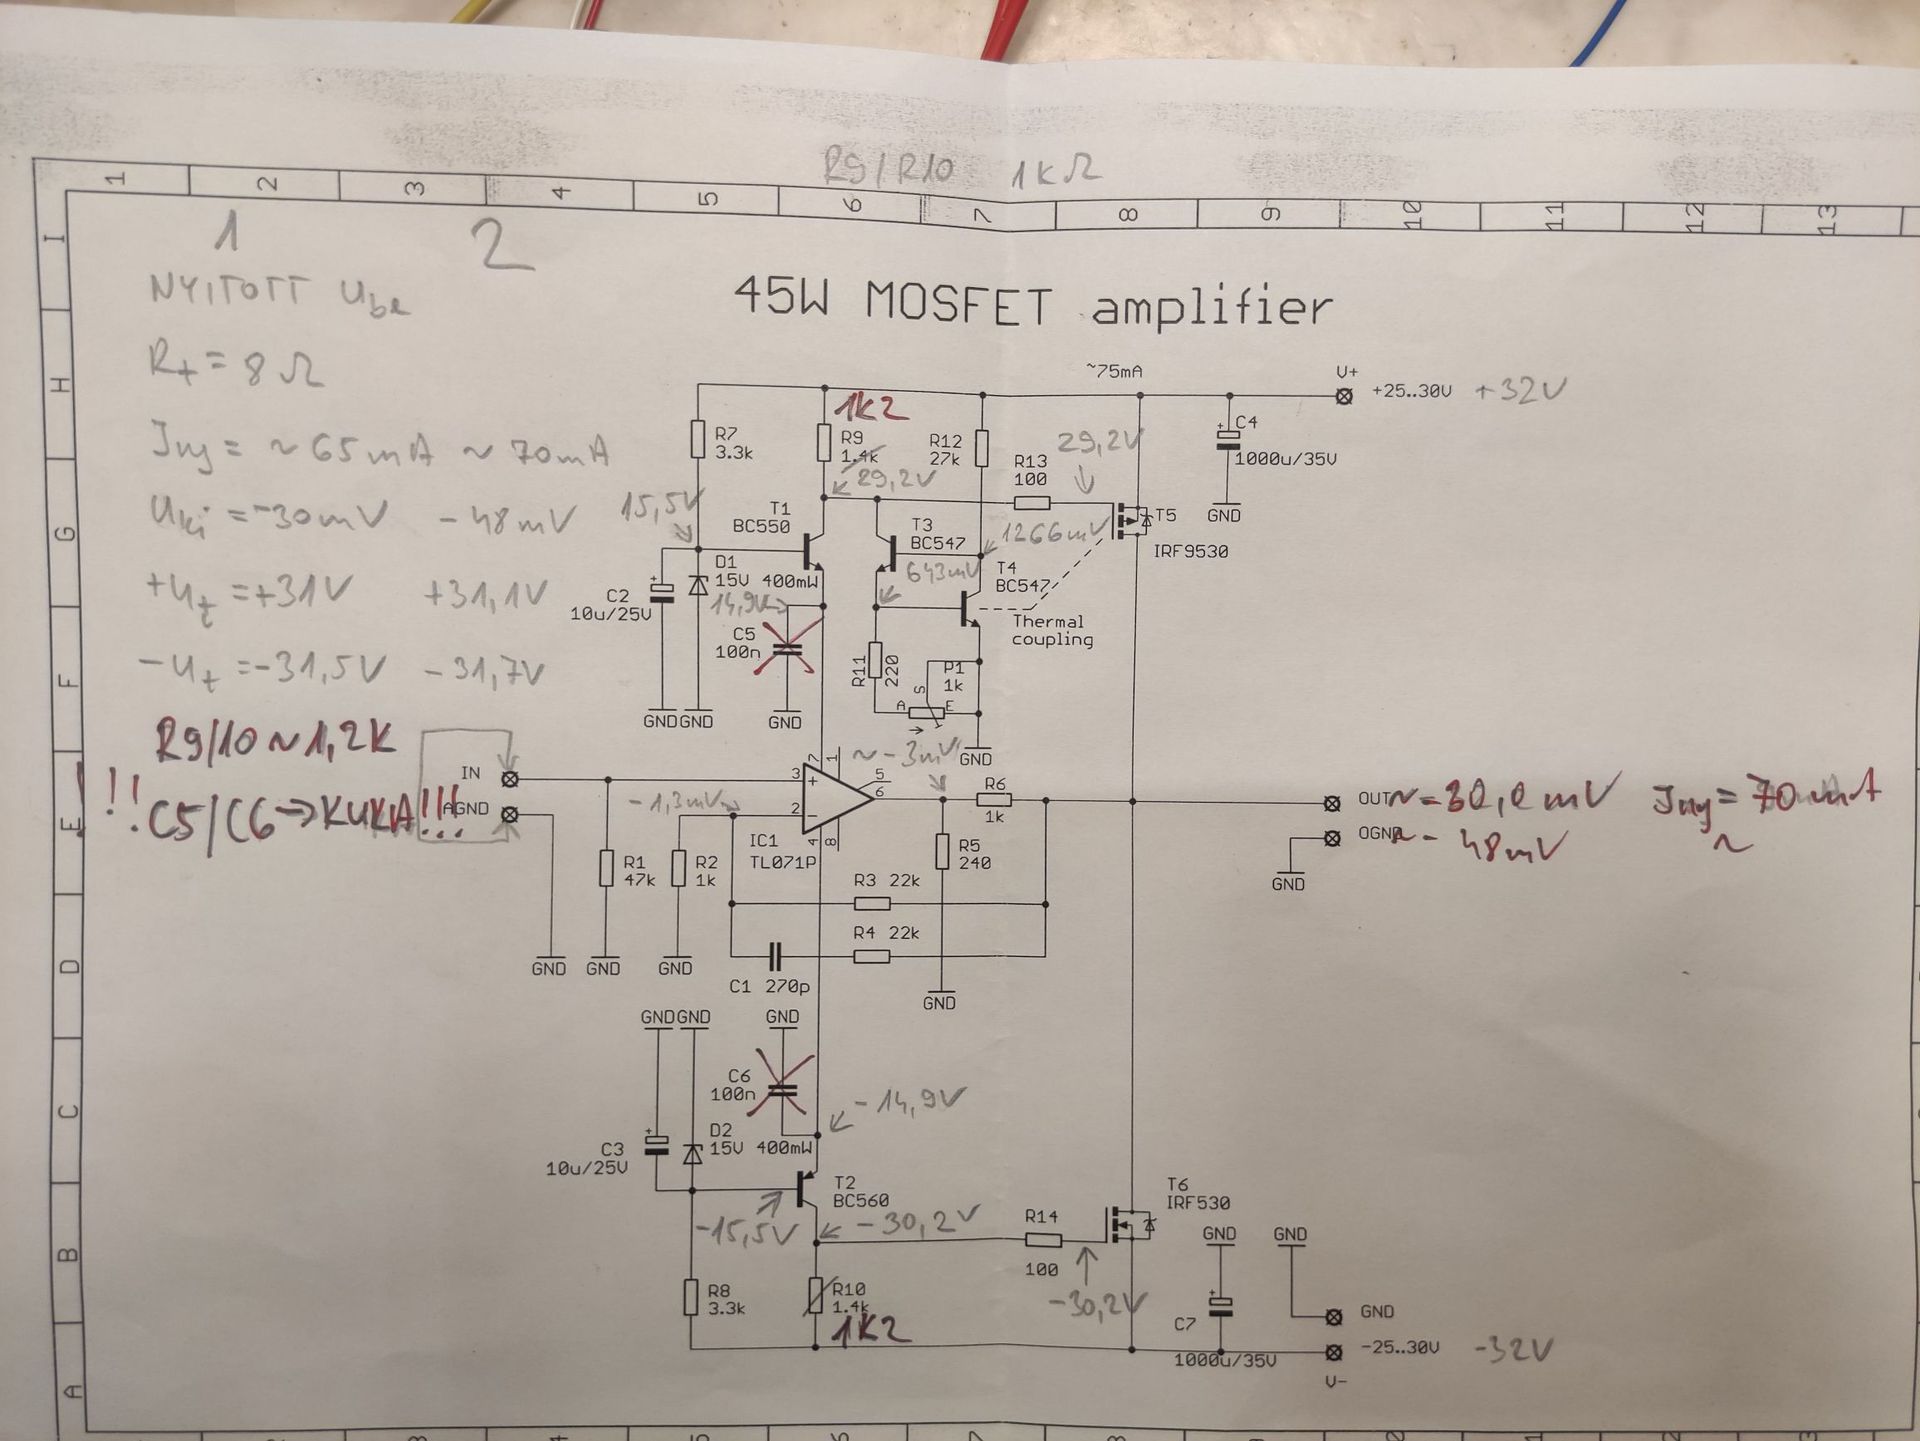 R9/R10 1kΩ
1 2 3 4 5 6 7 8 9 10 11 12 13
I
H
G
F
E
D
C
B
A
1 2
NYITOTT Ube
Rt = 8Ω
Jny = ~65mA ~70mA
Uki = -30mV -48mV
+Ut = +31V +31,1V
-Ut = -31,5V -31,7V
R9/10 ~ 1,2K
!!! C5/C6 → KUKA!!!
45W MOSFET amplifier
~75mA
V+
+25..30V +32V
1K2
R7
3.3k
R9
1.4k
29,2V
R12
27k
R13
100
29,2V
C4
1000u/35V
GND
15,5V
T1
BC550
T3
BC547
1266mV
T5
IRF9530
643mV
T4
BC547
C2
10u/25V
D1
15V 400mW
14,9V
C5
100n
Thermal
coupling
R11
220
P1
1k
A S E
GND GND GND
GND
~-3mV
IN
AGND
-1,3mV
3 + 7 1 5
2 - 4 8 6
IC1
TL071P
R6
1k
OUT ~ = 30,0mV Jny = 70mA
OGND ~ - 48mV ~
GND
R1
47k
R2
1k
R5
240
R3 22k
R4 22k
C1 270p
GND GND GND
GND
GND GND GND
C6
100n
-14,9V
C3
10u/25V
D2
15V 400mW
T2
BC560
-15,5V
-30,2V
R14
100
-30,2V
T6
IRF530
GND GND
R8
3.3k
R10
1.4k
1K2
C7
1000u/35V
GND
-25..30V -32V
V-